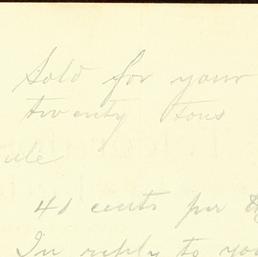 Sold for your
twenty tons
ule
40 cents per
In reply to you